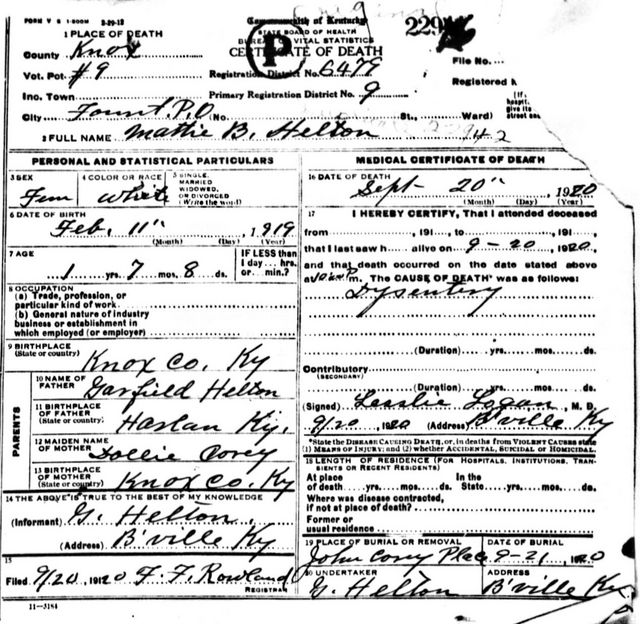 FORM V S 1-500M 3-29-18
Commonwealth of Kentucky
229
1 PLACE OF DEATH
STATE BOARD OF HEALTH
BUREAU VITAL STATISTICS
CERTIFICATE OF DEATH
P
County Knox
File No.
Vot. Pct. #9
Registration District No. 6479
Registered N
Inc. Town
Primary Registration District No. 9
City Fount, P.O (No. St., Ward)
2 FULL NAME Mattie B. Helton
PERSONAL AND STATISTICAL PARTICULARS
3 SEX Fem
4 COLOR OR RACE White
5 SINGLE, MARRIED WIDOWED, OR DIVORCED (Write the word)
6 DATE OF BIRTH Feb. 11", 1919
(Month) (Day) (Year)
7 AGE 1 yrs. 7 mos. 8 ds.
IF LESS than 1 day .... hrs. or .... min.?
8 OCCUPATION
(a) Trade, profession, or particular kind of work
(b) General nature of industry
business or establishment in
which employed (or employer)
9 BIRTHPLACE
(State or country) Knox Co. Ky
PARENTS
10 NAME OF FATHER Garfield Helton
11 BIRTHPLACE OF FATHER (State or country) Harlan Ky.
12 MAIDEN NAME OF MOTHER Lollie Corey
13 BIRTHPLACE OF MOTHER (State or country) Knox Co. Ky
14 THE ABOVE IS TRUE TO THE BEST OF MY KNOWLEDGE
(Informant) G. Helton
(Address) B'ville Ky
15
Filed 9/20, 1920 F. F. Rowland
REGISTRAR
11-3184
MEDICAL CERTIFICATE OF DEATH
16 DATE OF DEATH Sept- 20", 1920
(Month) (Day) (Year)
17 I HEREBY CERTIFY, That I attended deceased
from , 191 , to , 191 ,
that I last saw h alive on 9-20, 1920,
and that death occurred on the date stated above
at m. The CAUSE OF DEATH* was as follows:
Dysentery
(Duration) yrs. mos. ds.
Contributory
(SECONDARY)
(Duration) yrs. mos. ds.
(Signed) Lesslie Logan, M. D.
9/20, 1920 (Address) B'ville Ky
*State the DISEASE CAUSING DEATH, or, in deaths from VIOLENT CAUSES state
(1) MEANS OF INJURY; and (2) whether ACCIDENTAL, SUICIDAL OR HOMICIDAL.
18 LENGTH OF RESIDENCE (FOR HOSPITALS, INSTITUTIONS, TRANSIENTS OR RECENT RESIDENTS)
At place of death yrs. mos. ds. In the State yrs. mos. ds.
Where was disease contracted,
if not at place of death?
Former or
usual residence
19 PLACE OF BURIAL OR REMOVAL John Corey Place
DATE OF BURIAL 9-21, 1920
20 UNDERTAKER G. Helton
ADDRESS B'ville Ky